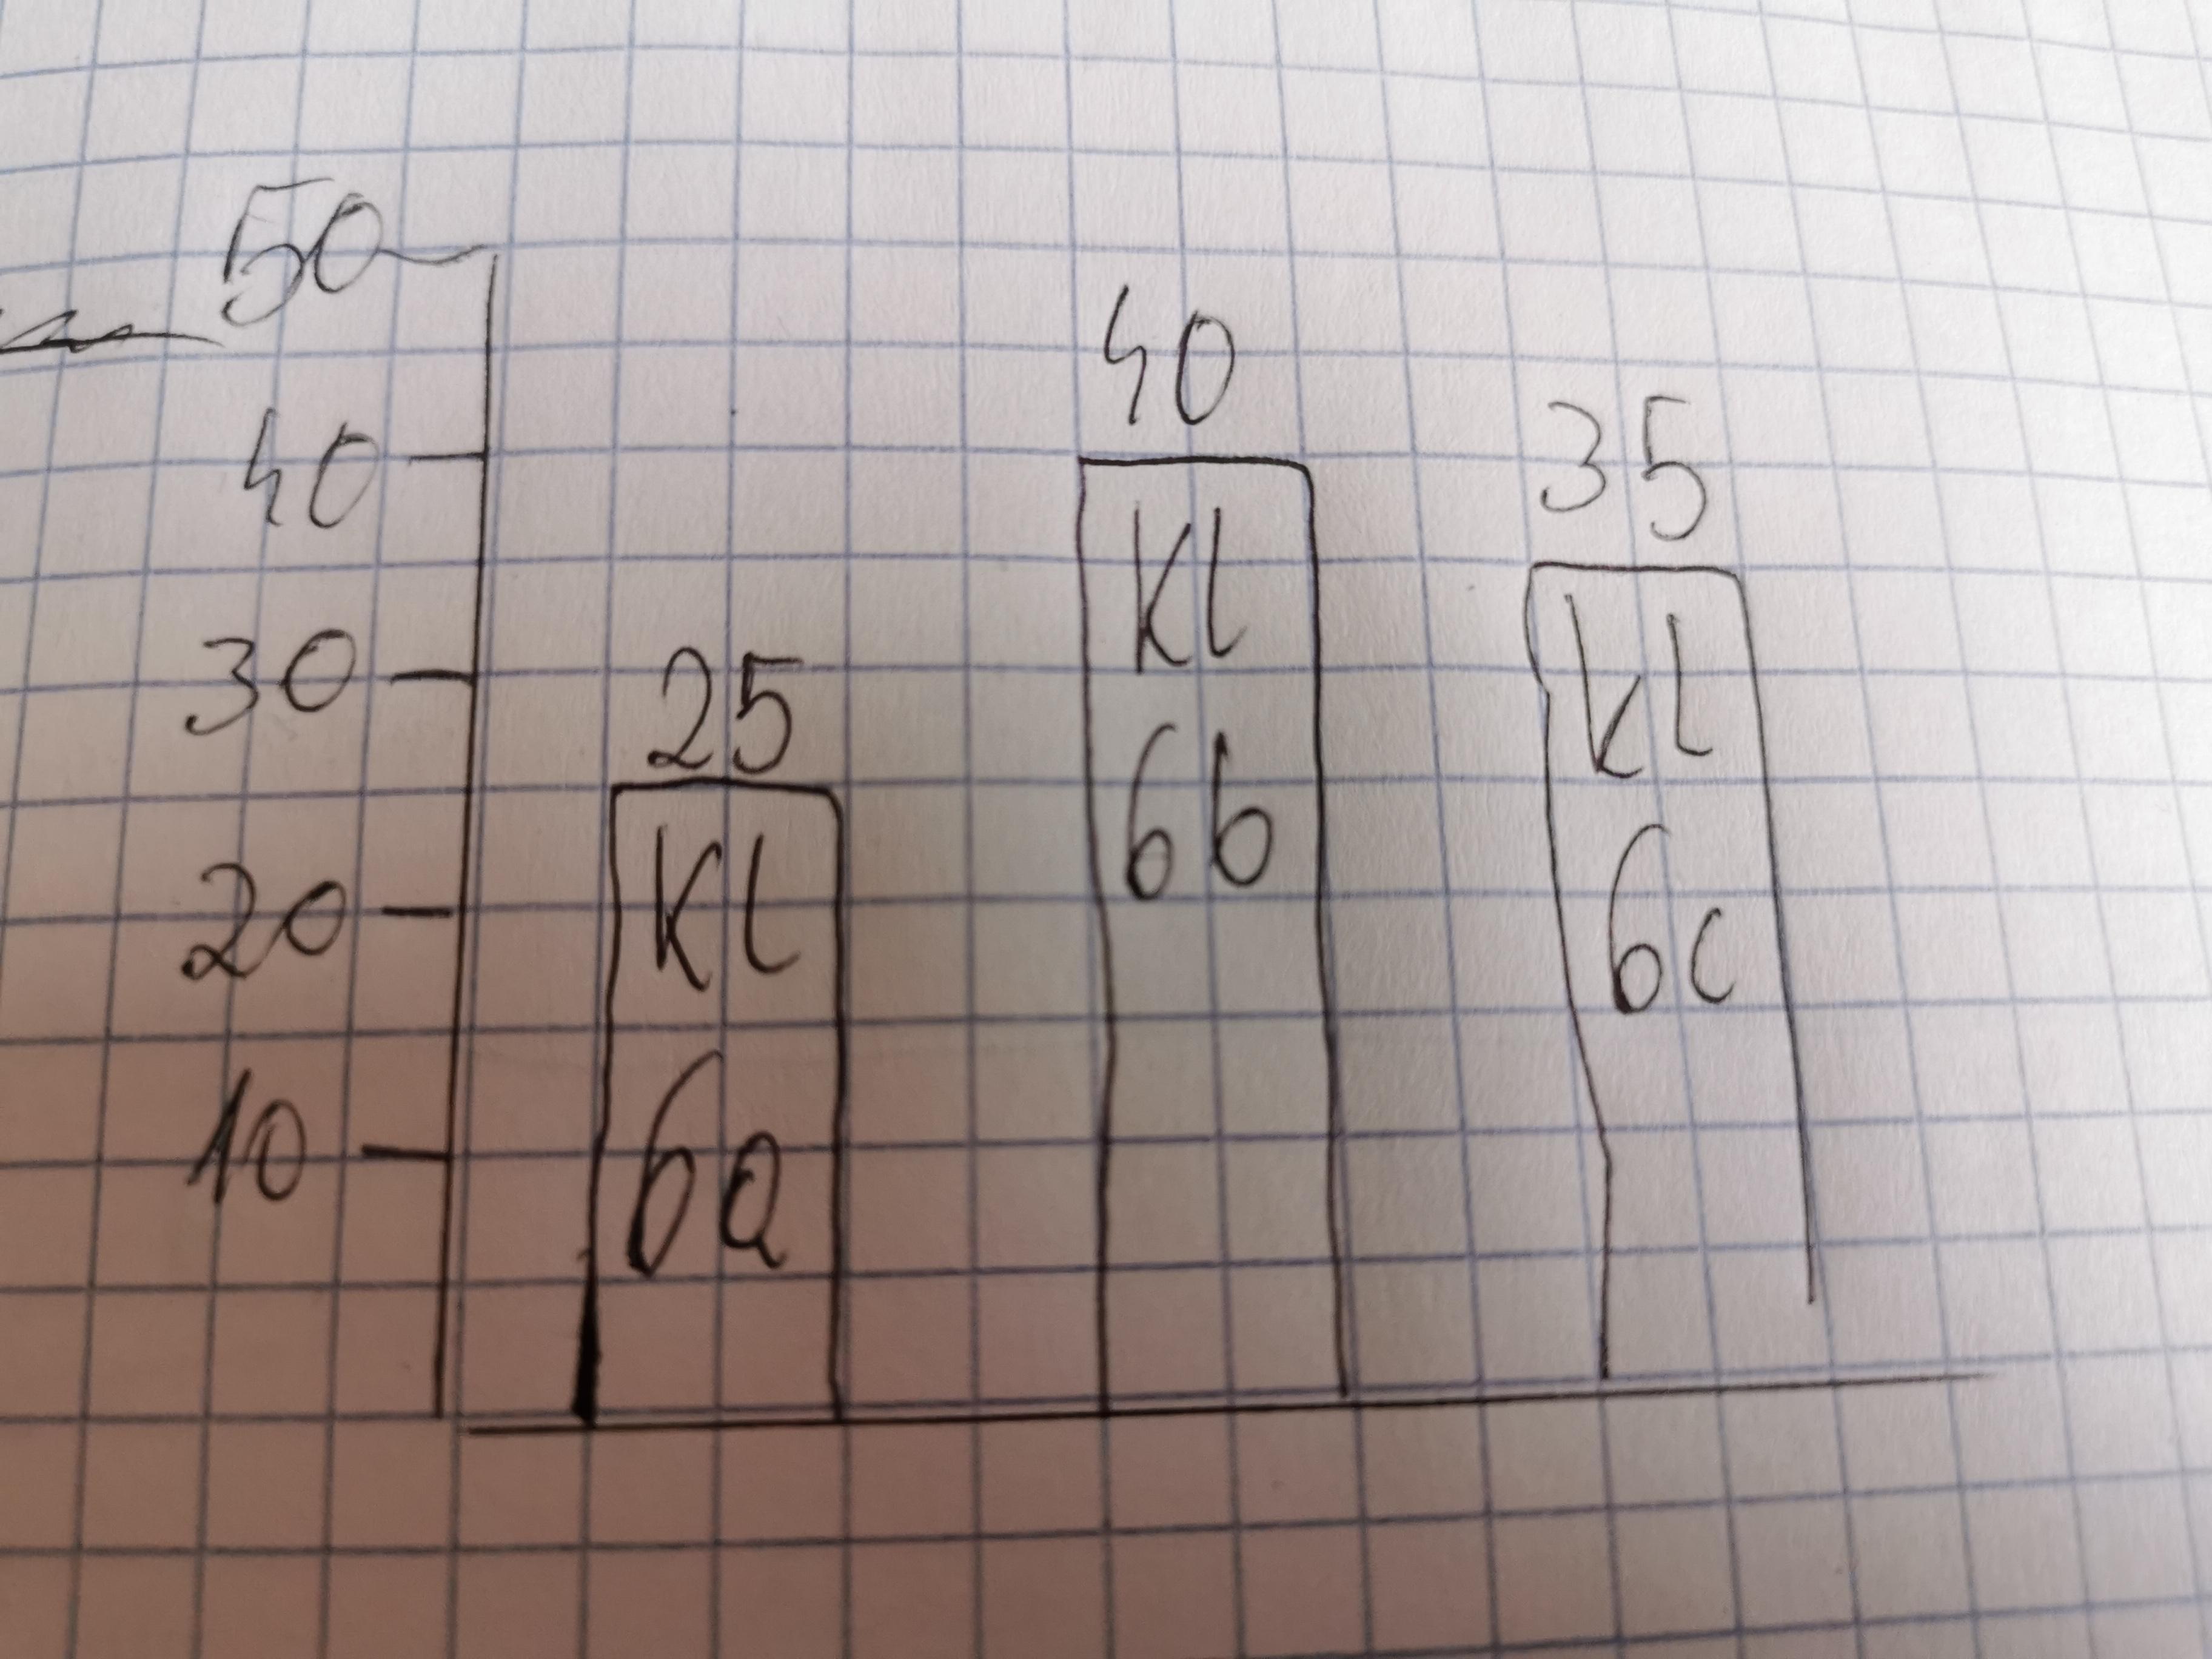 50
40
30
20
10
25
KL
6a
40
KL
6b
35
KL
6c